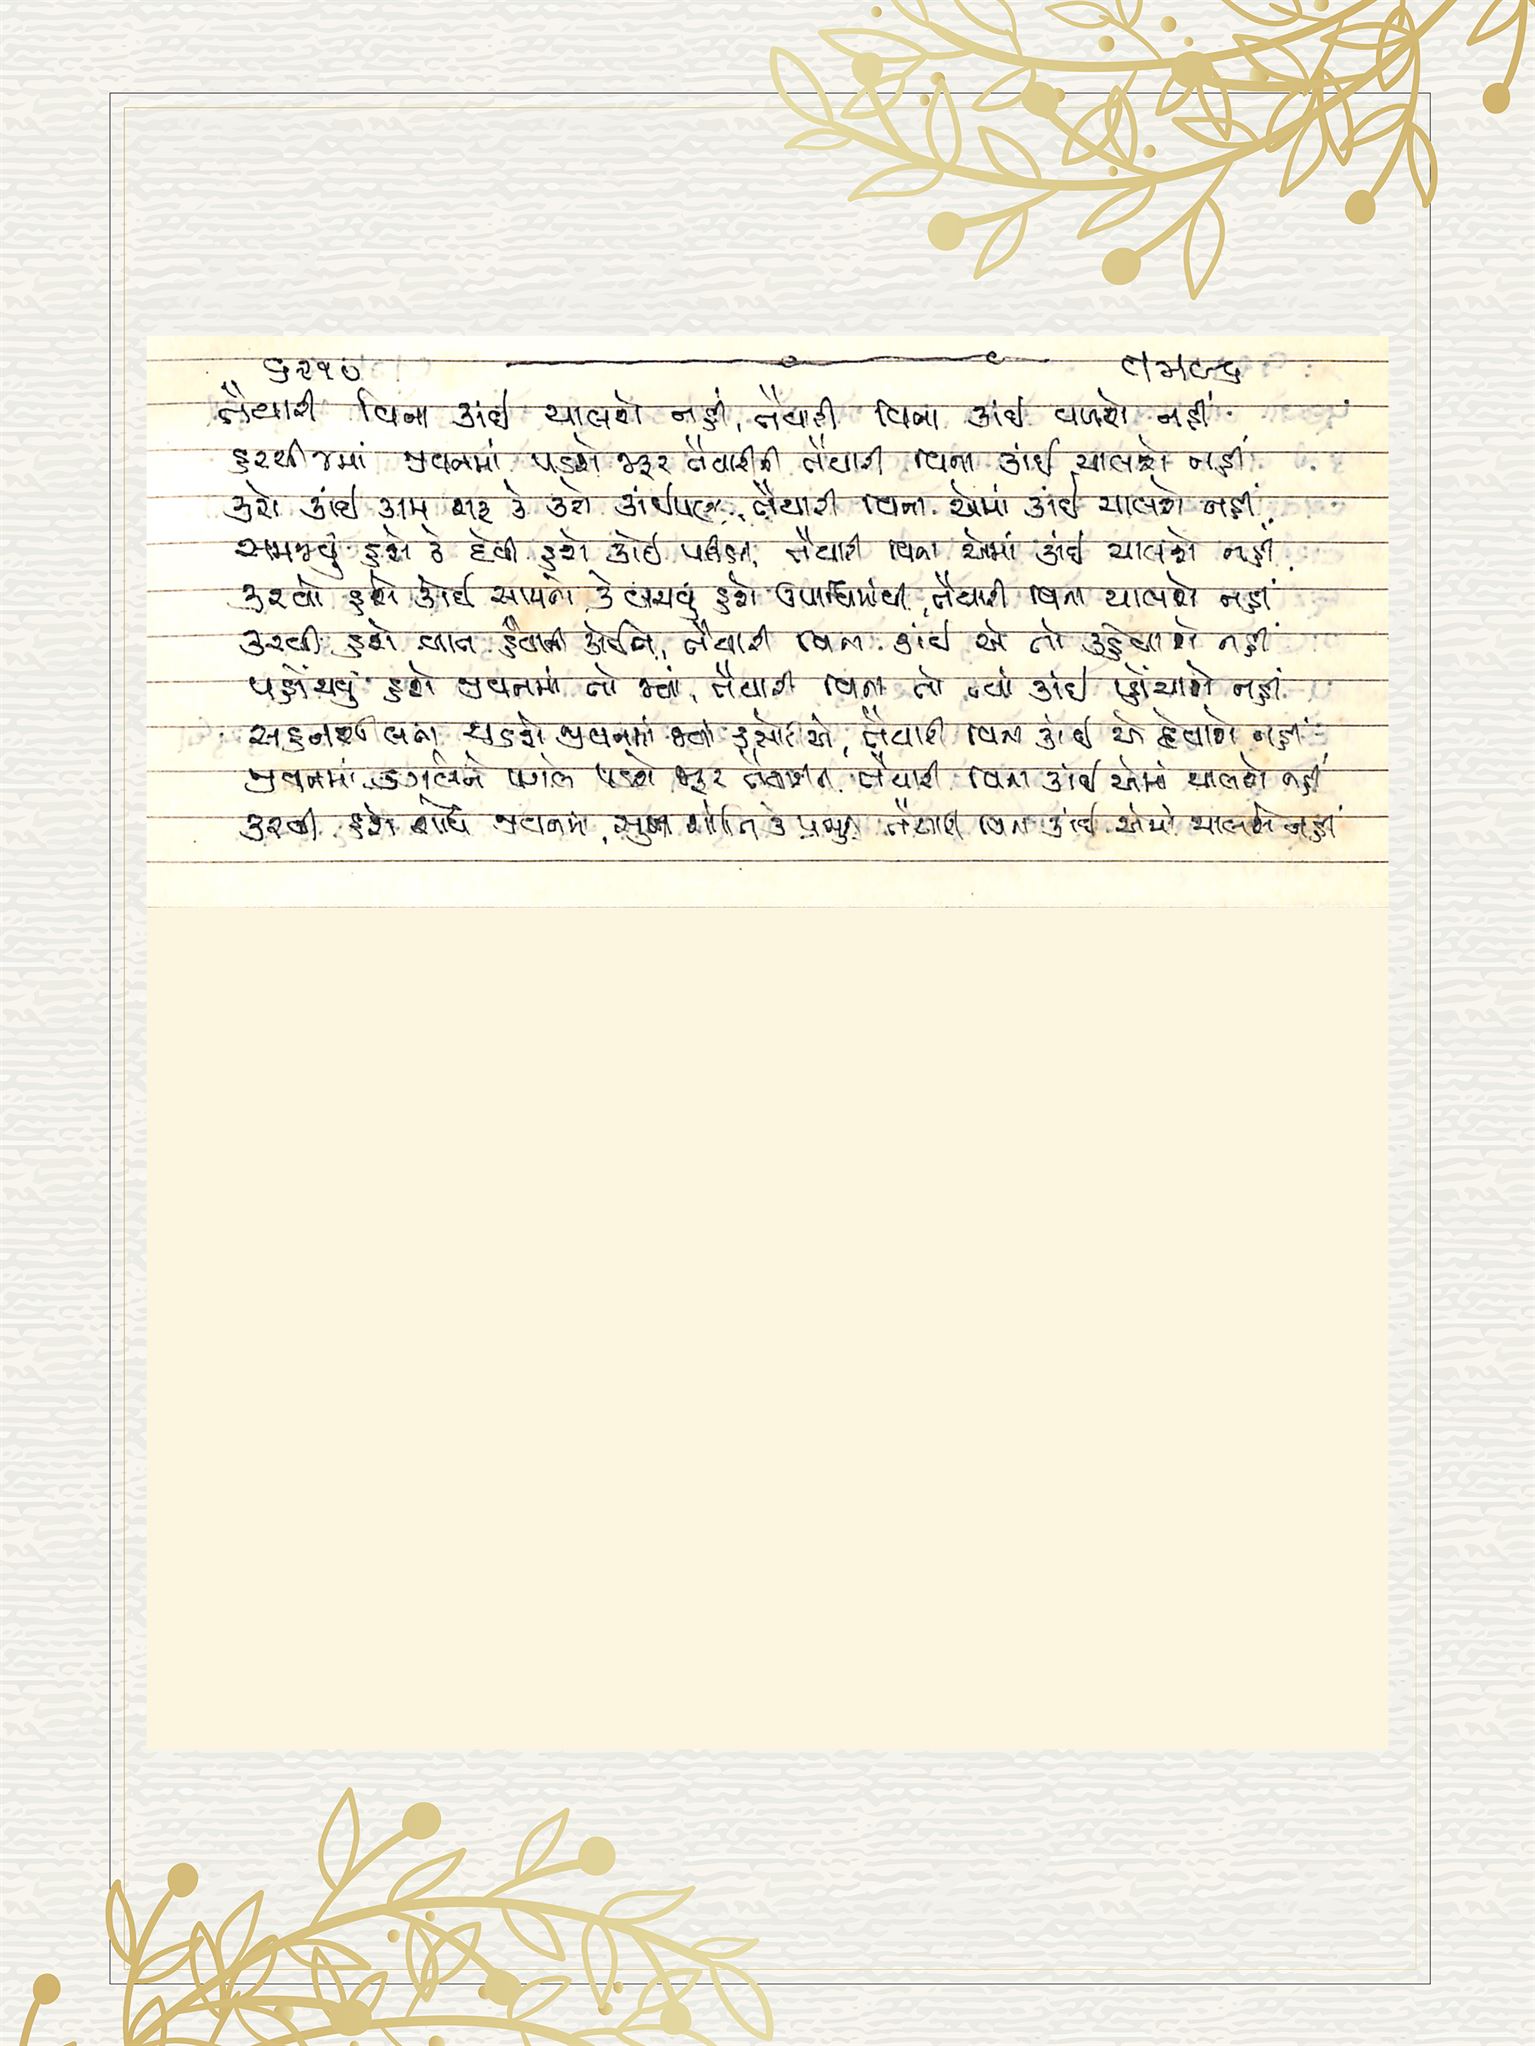 ૬૨૧૦
તૈયારી વિના કાંઈ ચાલશે નહીં, તૈયારી વિના કાંઈ વળશે નહીં
હરચીજમાં જીવનમાં પડશે જરૂર તૈયારીની તૈયારી વિના કાંઈ ચાલશે નહીં
કરશો કાંઈ કામ શરૂ કે કરશો કાંઈપણ, તૈયારી વિના એમાં કાંઈ ચાલશે નહીં
સમજવું હશે કે દેવી હશે કોઈ પરીક્ષા, તૈયારી વિના એમાં કાંઈ ચાલશે નહીં
કરવો હશે કોઈ સામનો કે બચવું હશે ઉપાધિમાંથી, તૈયારી વિના ચાલશે નહીં
કરવી હશે વાત હૈયાની કોઈને, તૈયારી વિના કાંઈ એ તો કહેવાશે નહીં
પહોંચવું હશે જીવનમાં તો જ્યાં, તૈયારી વિના તો ત્યાં કાંઈ પહોંચાશે નહીં
સહનશીલતા ચડશે જીવનમાં જ્યાં કસોટીએ, તૈયારી વિના કાંઈ એ દેવાશે નહીં
જીવનમાં ડગલેને પગલે પડશે જરૂર તૈયારીની તૈયારી વિના કાંઈ એમાં ચાલશે નહીં
કરવી હશે શોધ જીવનમાં, સુખ શાંતિ કે પ્રભુની તૈયારી વિના કાંઈ એમાં ચાલશે નહીં